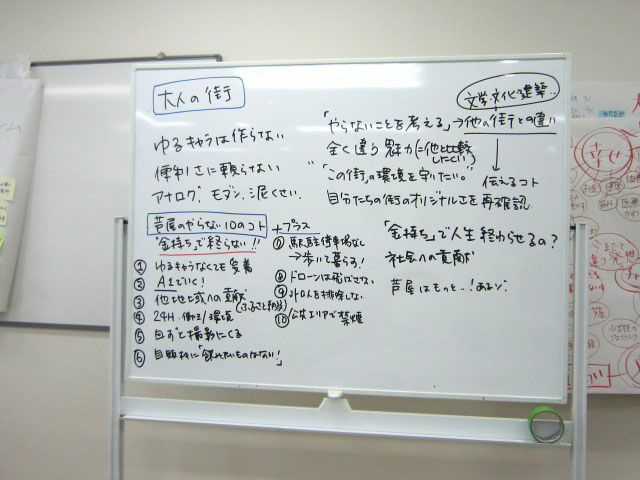 大人の街
ゆるキャラは作らない
便利さに頼らない
アナログ、モダン、泥くさい
芦屋のやらない10のコト
"金持ち"で終らない!!
① ゆるキャラなくても愛着
②
③ 他地域への貢献(ふるさと納税)
④ 24H 働ける環境
⑤ 自ずと撮影にくる
⑥ 自販機に「飲みたいものはない!」
+プラス
⑦ 駅駐停車場なし
→歩いて暮らす!
⑧ ドローンは飛ばさない
⑨ 外の人を排除しない
⑩ 公共エリアで禁煙
文学・文化・建築..
「やらないことを考える」→他の街との違い
全く違う魅力(=他と比較しにくい)
"「この街」の環境を守りたい。"
伝えるコト
自分たちの街のオリジナルさを再確認
「金持ち」で人生終わらせるの?
社会への貢献
芦屋はもっと…!あるゾ
幸せ